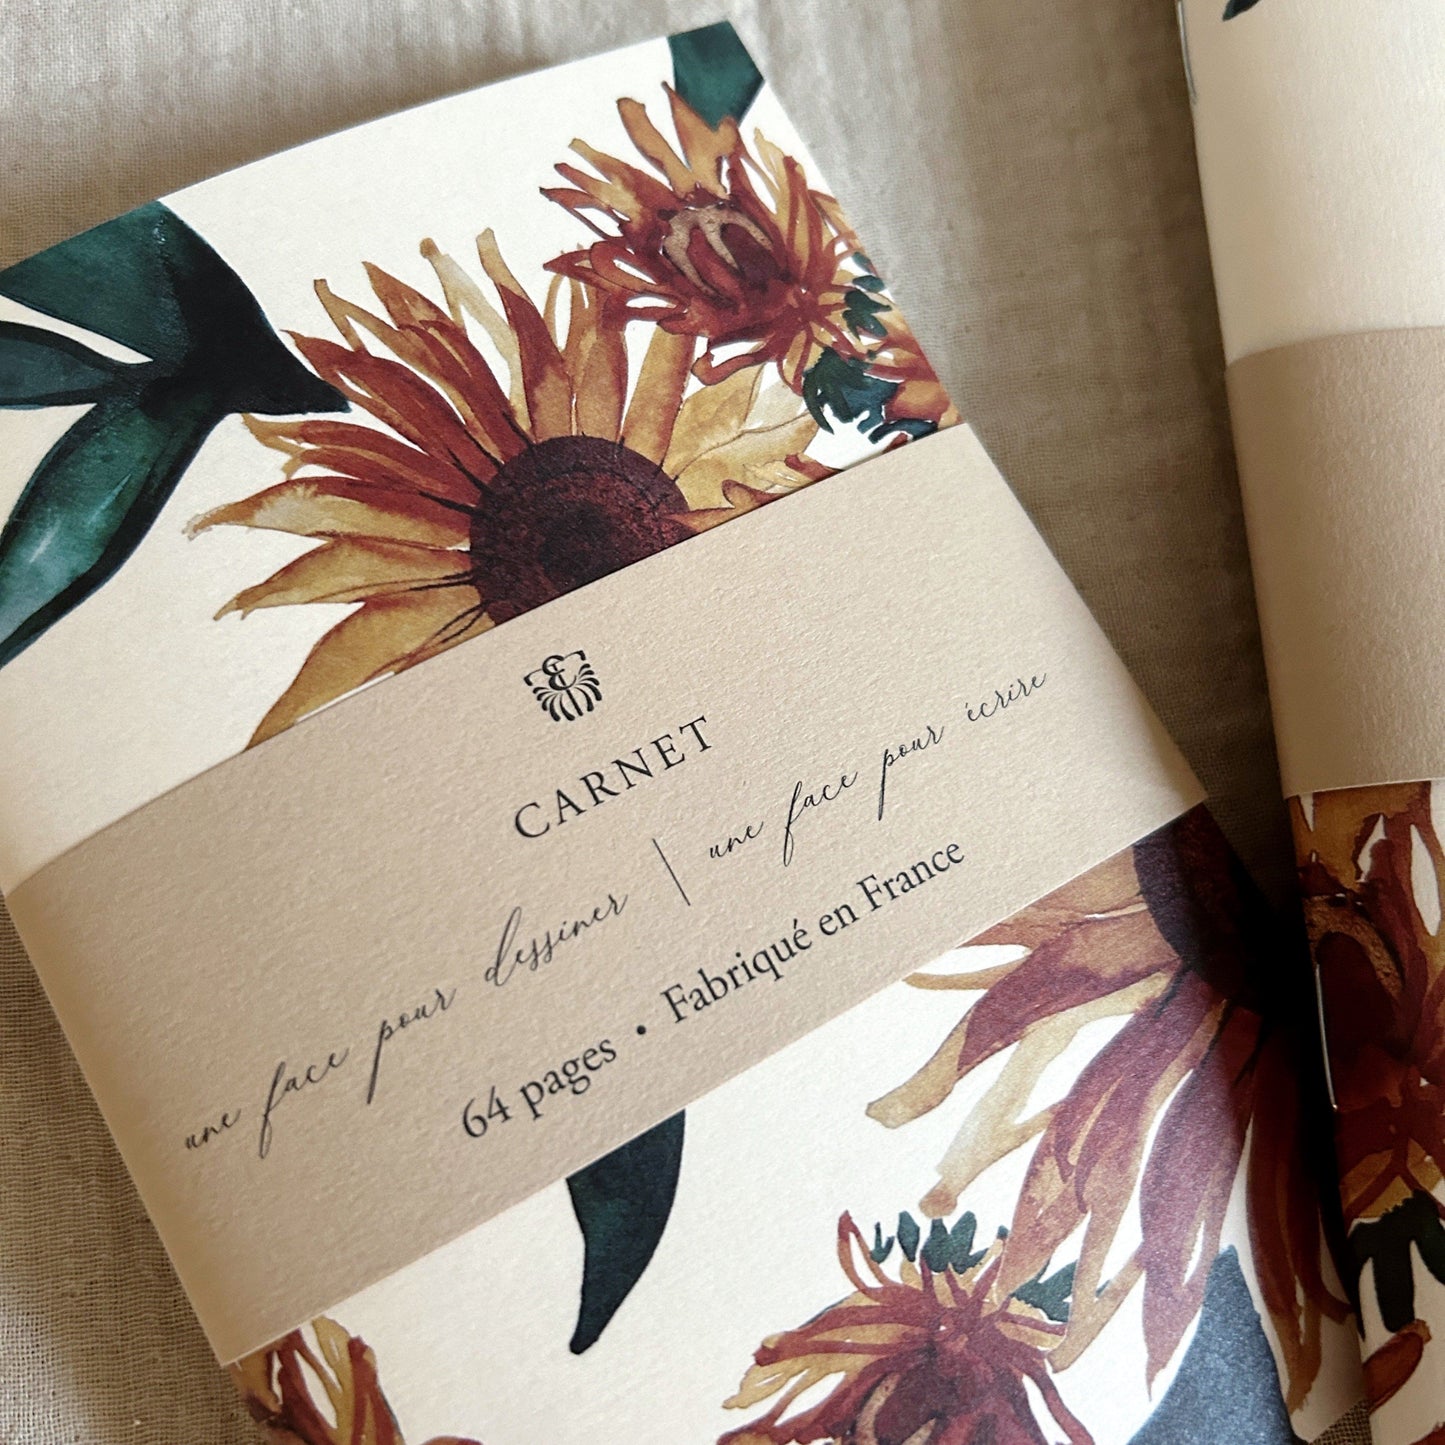 CARNET
une face pour dessiner | une face pour écrire
64 pages • Fabriqué en France